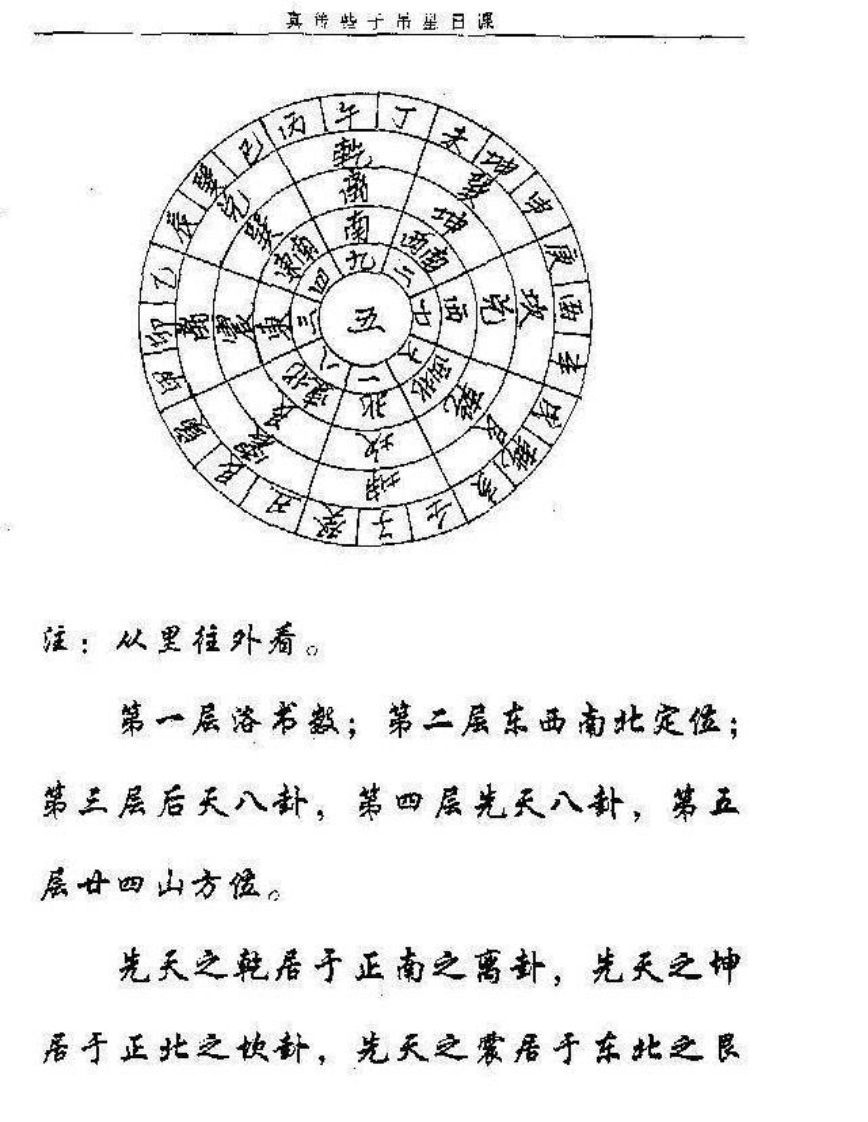 真传些子吊星日课
午 丁 未 坤 申 庚 酉 辛 戌 乾 亥 壬 子 癸 丑 艮 寅 甲 卯 乙 辰 巽 巳 丙
乾 巽 坎 艮 坤 震 离 兑
离 坤 兑 乾 坎 艮 震 巽
南 西南 西 西北 北 东北 东 东南
九 二 七 六 一 八 三 四
五
注：从里往外看。
第一层洛书数；第二层东西南北定位；
第三层后天八卦，第四层先天八卦，第五
层廿四山方位。
先天之乾居于正南之离卦，先天之坤
居于正北之坎卦，先天之震居于东北之艮